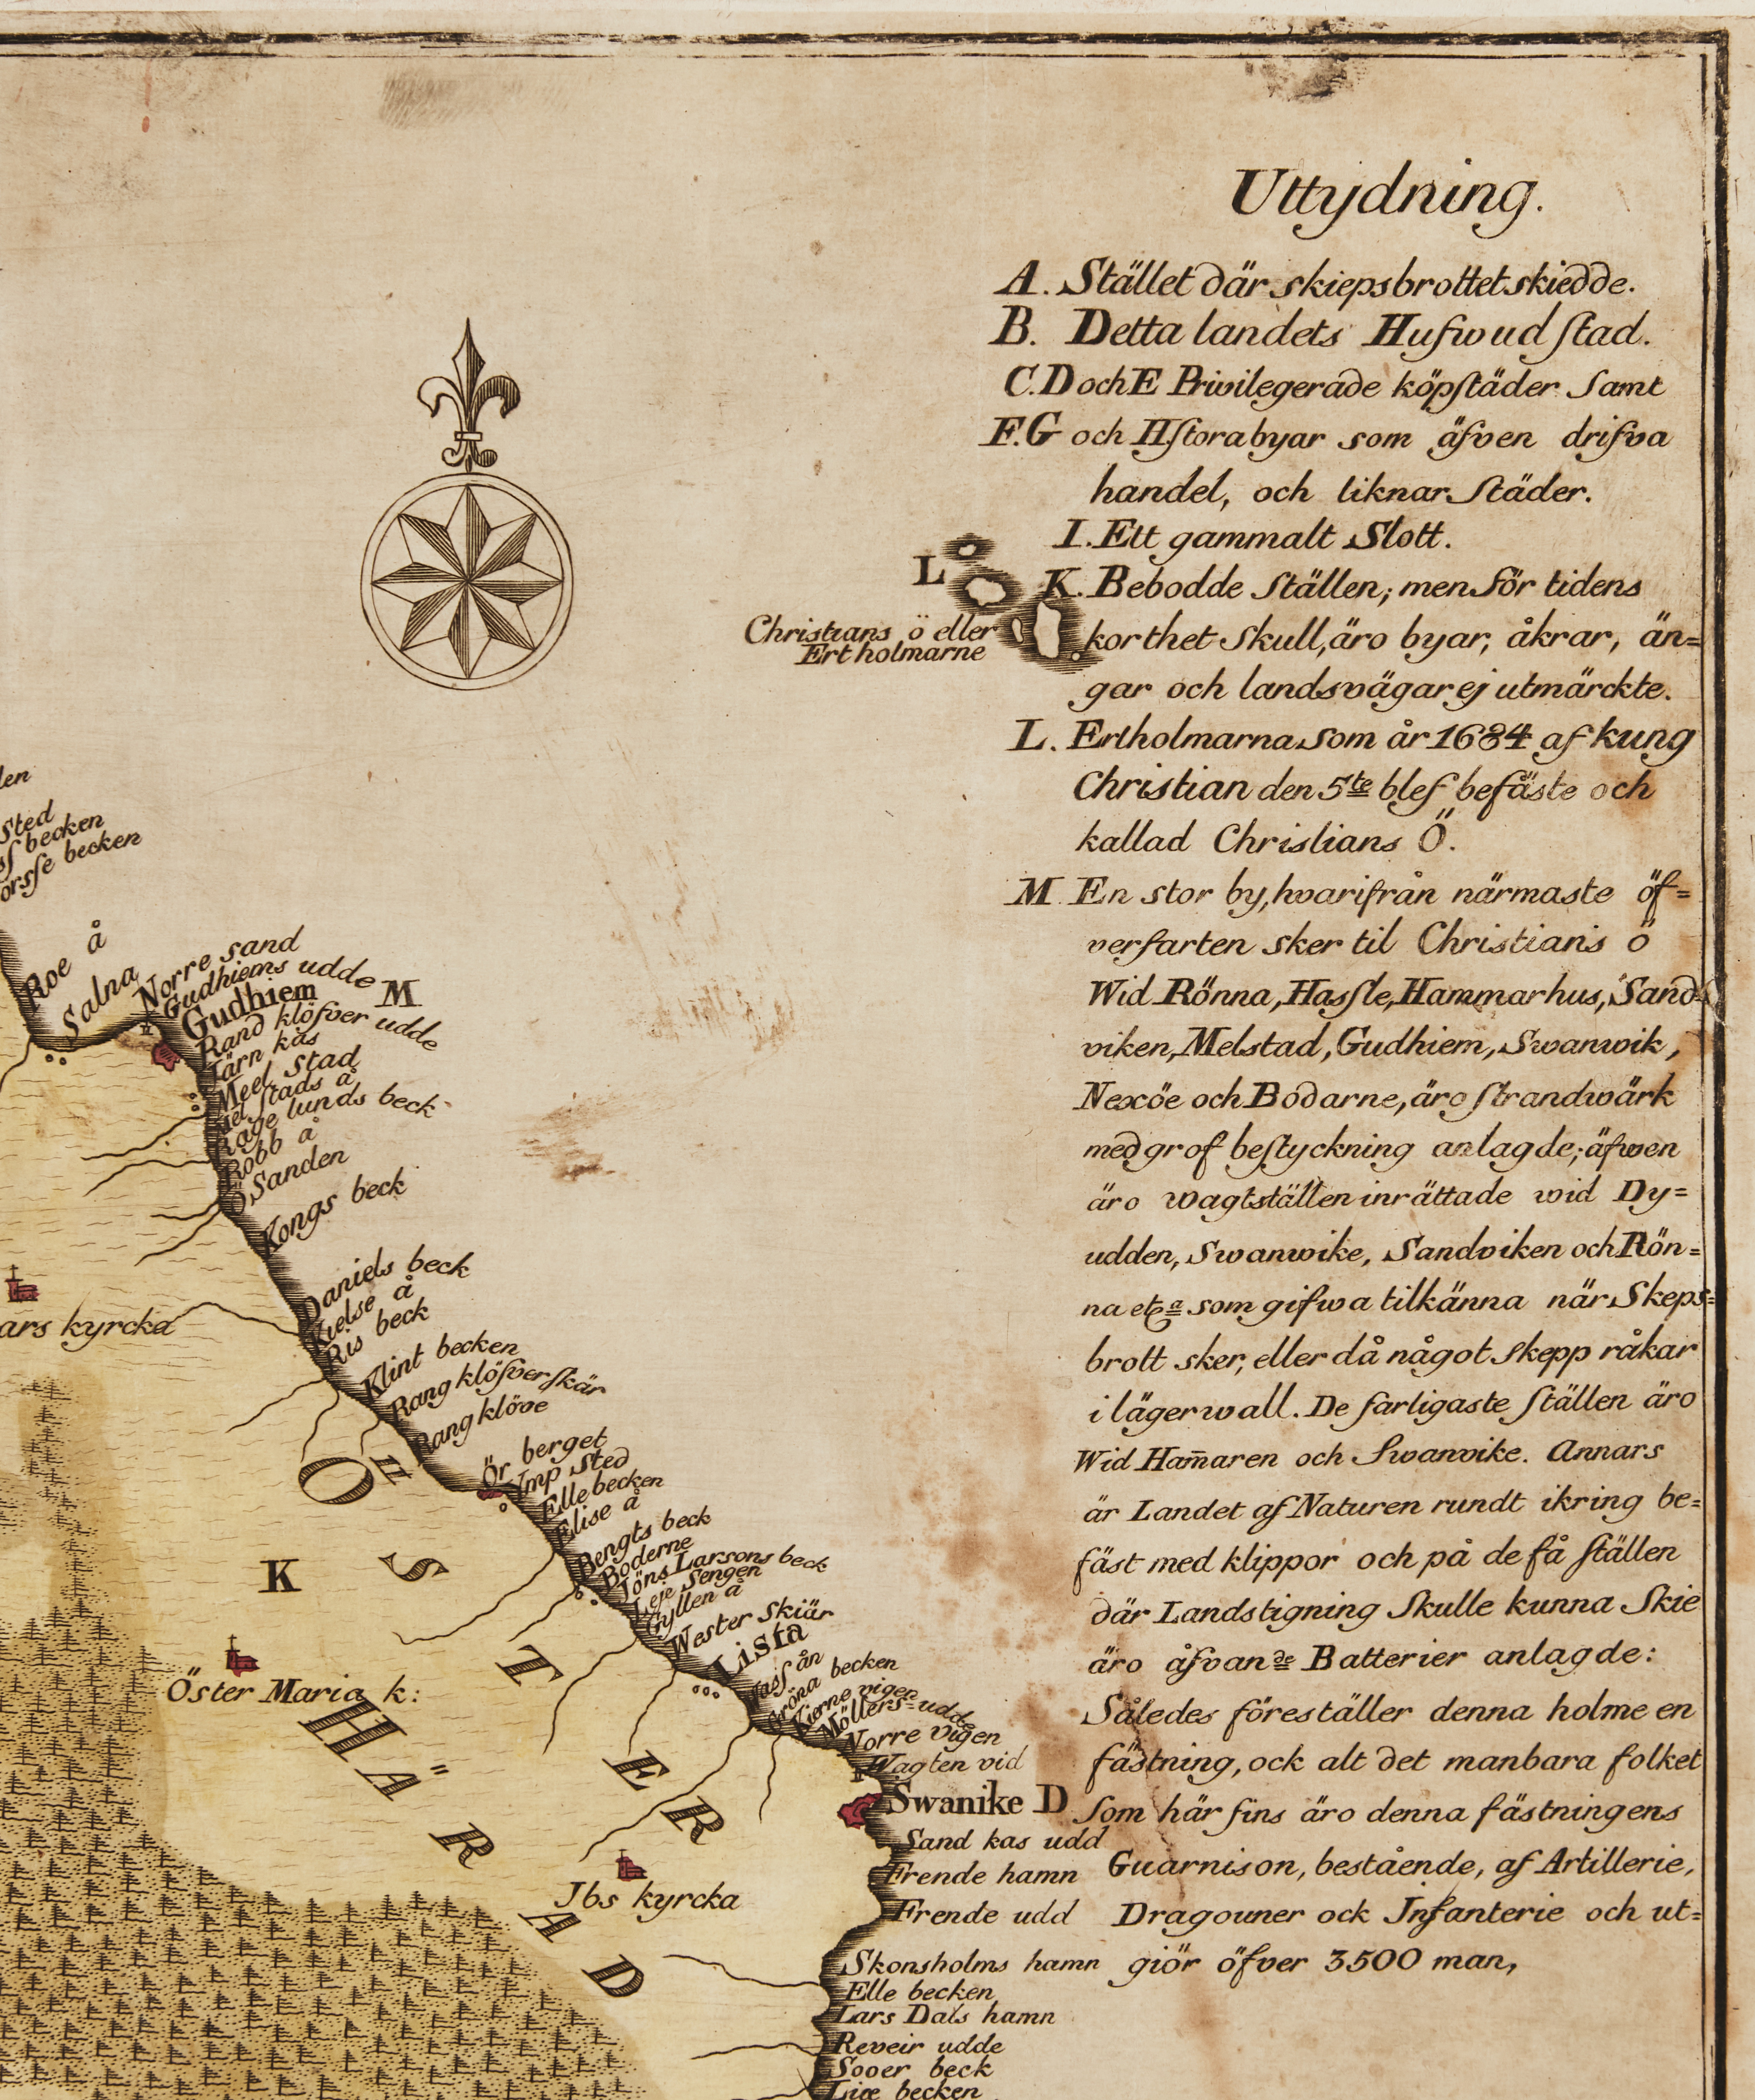 Uttydning.
A. Stället där skiepsbrottet skiedde.
B. Detta landets Hufwud stad.
C. D och E Privilegerade köpstäder samt
F. G och H stora byar som äfven drifva
handel, och liknar städer.
I. Ett gammalt Slott.
K. Bebodde ställen; men för tidens
korthet skull, äro byar, åkrar, än=
gar och landsvägar ej utmärckte.
L. Ertholmarna som år 1684 af kung
Christian den 5te blef befäste och
kallad Christians Ö.
M. En stor by, hvarifrån närmaste öf=
verfarten sker til Christians ö
Wid Rönna, Hassle, Hammarhus, Sand=
viken, Melstad, Gudhiem, Swanwik,
Nexöe och Bodarne, äro strandwärk
med grof bestyckning anlagde; äfwen
äro wagtställen inrättade wid Dy=
udden, Swanwike, Sandviken och Rön=
na etca som gifwa tilkänna när Skeps=
brott sker, eller då något skepp råkar
i lägerwall. De farligaste ställen äro
Wid Ham̄aren och Swanvike. Annars
är Landet af Naturen rundt ikring be=
fäst med klippor och på de få ställen
där Landstigning skulle kunna skie
äro åfvande Batterier anlagde:
Således föreställer denna holme en
fästning, ock alt det manbara folket
som här fins äro denna fästningens
Guarnison, bestående, af Artillerie,
Dragouner ock Infanterie och ut=
giör öfver 3500 man,
L
Christians ö eller
Ertholmarne
len
sted
becken
becken
Roe å
Salna
Norre sand
Gudhiems udde
Gudhiem M
Rand klöfver udde
Järn kås
Meel stad
stads å
Råge lunds beck
Robb å
Ö Sanden
Kongs beck
Daniels beck
Kielse å
Ris beck
ars kyrcka
Klint becken
Rang klöfver skär
Rang klöve
Ör berget
Ymp sted
Elle becken
Elise å
Bengts beck
Boderne
Jöns Larsons beck
Leje Sengen
Gyllen å
Wester Skiär
Lista
ån
Gröna becken
Kierne vigen
Möllers=udde
Norre vigen
Wagten vid
Swanike D
Sand kas udd
Frende hamn
Frende udd
Skonsholms hamn
Elle becken
Lars Dals hamn
Reveir udde
Sooer beck
Lice becken
K
Öster Maria k:
Jbs kyrcka
ÖSTER
HÄRAD